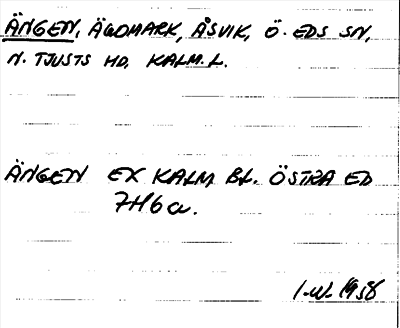 ÄNGEN, ÄGOMARK, ÅSVIK, Ö. EDS SN,
N. TJUSTS HD, KALM. L.
ÄNGEN EX KALM BL. ÖSTRA ED
7H6a.
I.W. 1958